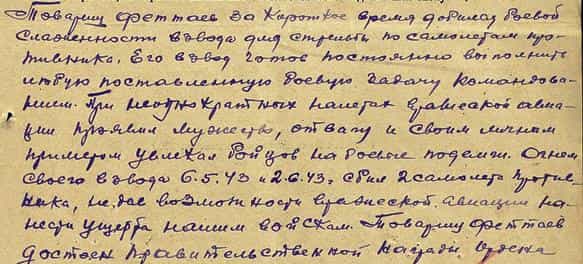 Товарищ Феттаев за короткое время добился боевой
слаженности взвода для стрельбы по самолетам про-
тивника. Его взвод готов постоянно выполнить
любую поставленную боевую задачу командова-
нием. При неоднократных налетах вражеской авиа-
ции проявил мужество, отвагу и своим личным
примером увлекал бойцов на боевые подвиги. Огнем
своего взвода 6.5.43 и 2.6.43 г. сбил 2 самолета против-
ника, не дав возможности вражеской авиации на-
нести ущерба нашим войскам. Товарищ Феттаев
достоен правительственной награды ордена